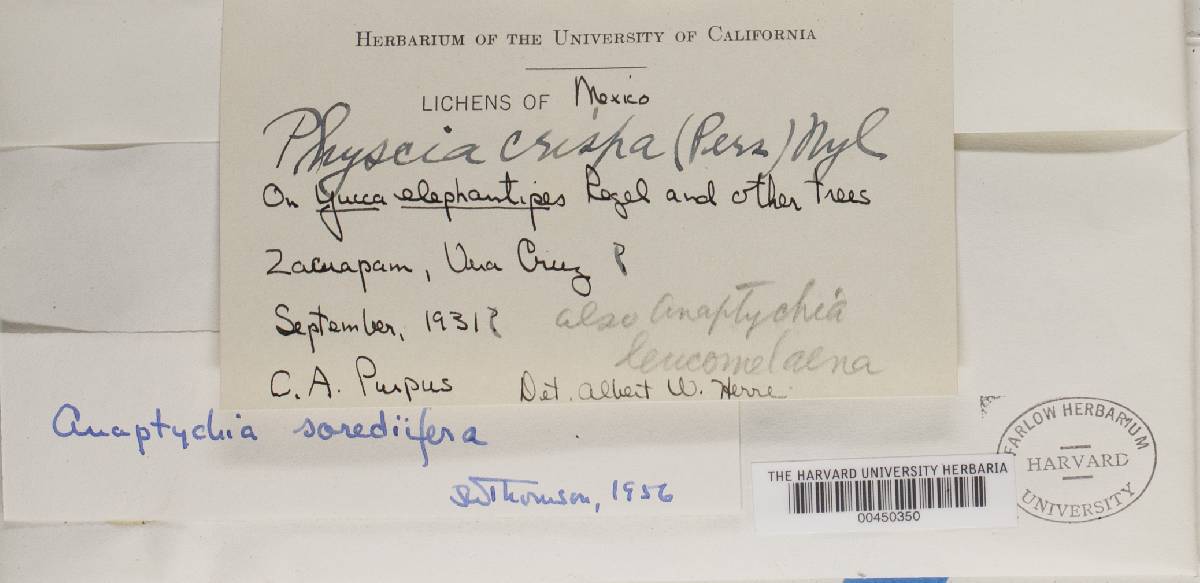 HERBARIUM OF THE UNIVERSITY OF CALIFORNIA
LICHENS OF Mexico
Physcia crispa (Pers) Nyl
On Yucca elephantipes Regel and other trees
Zacuapam, Vera Cruz ?
September, 1931?
also Anaptychia
leucomelaena
C. A. Purpus
Det. Albert W. Herre
Anaptychia sorediifera
JW Thomson, 1956
THE HARVARD UNIVERSITY HERBARIA
00450350
FARLOW HERBARIUM
HARVARD
UNIVERSITY